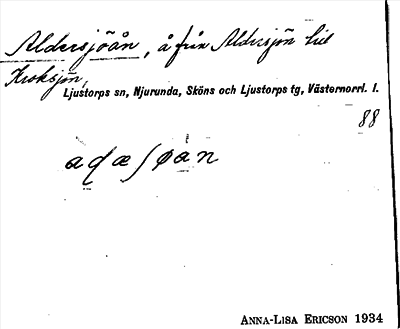 Aldersjöån, å från Aldersjön till
Kroksjön,
Ljustorps sn, Njurunda, Sköns och Ljustorps tg, Västernorrl. l.
88
ANNA-LISA ERICSON 1934